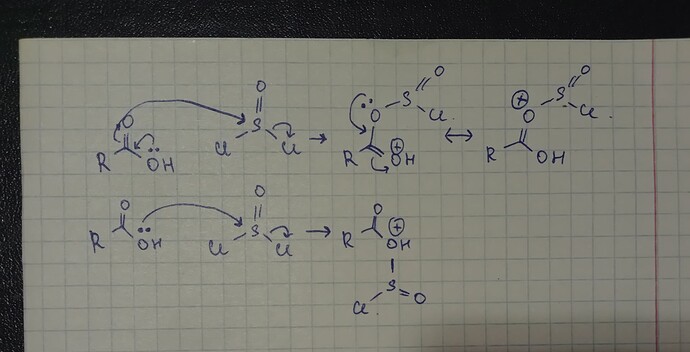 O O O
S ⊕ S
O S O Cl O Cl
Cl Cl → ⊕ ↔
R OH R OH R OH
O O O
S ⊕
R OH Cl Cl → R OH
S
Cl O